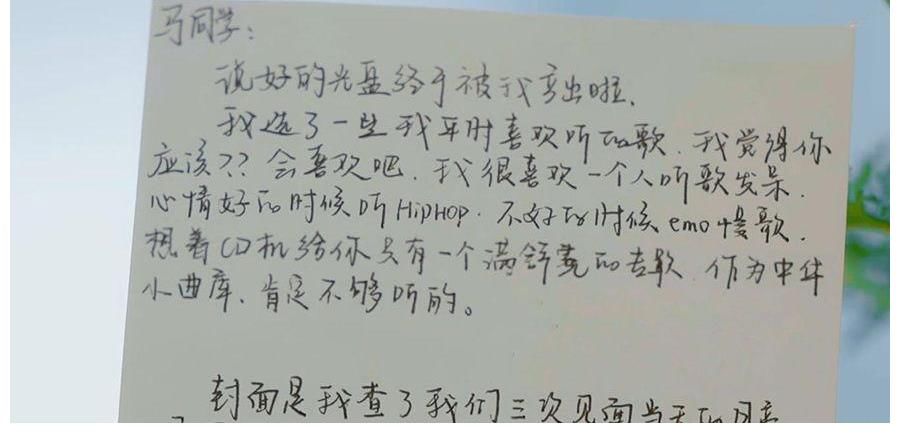 马同学:
说好的光盘终于被我弄出啦.
我选了一些我平时喜欢听的歌.我觉得你
应该??会喜欢吧.我很喜欢一个人听歌发呆.
心情好的时候听HipHop.不好的时候emo慢歌.
想着CD机给你只有一个满舒克的专歌.作为中华
小曲库、肯定不够听的。
封面是我查了我们三次见面当天的月亮